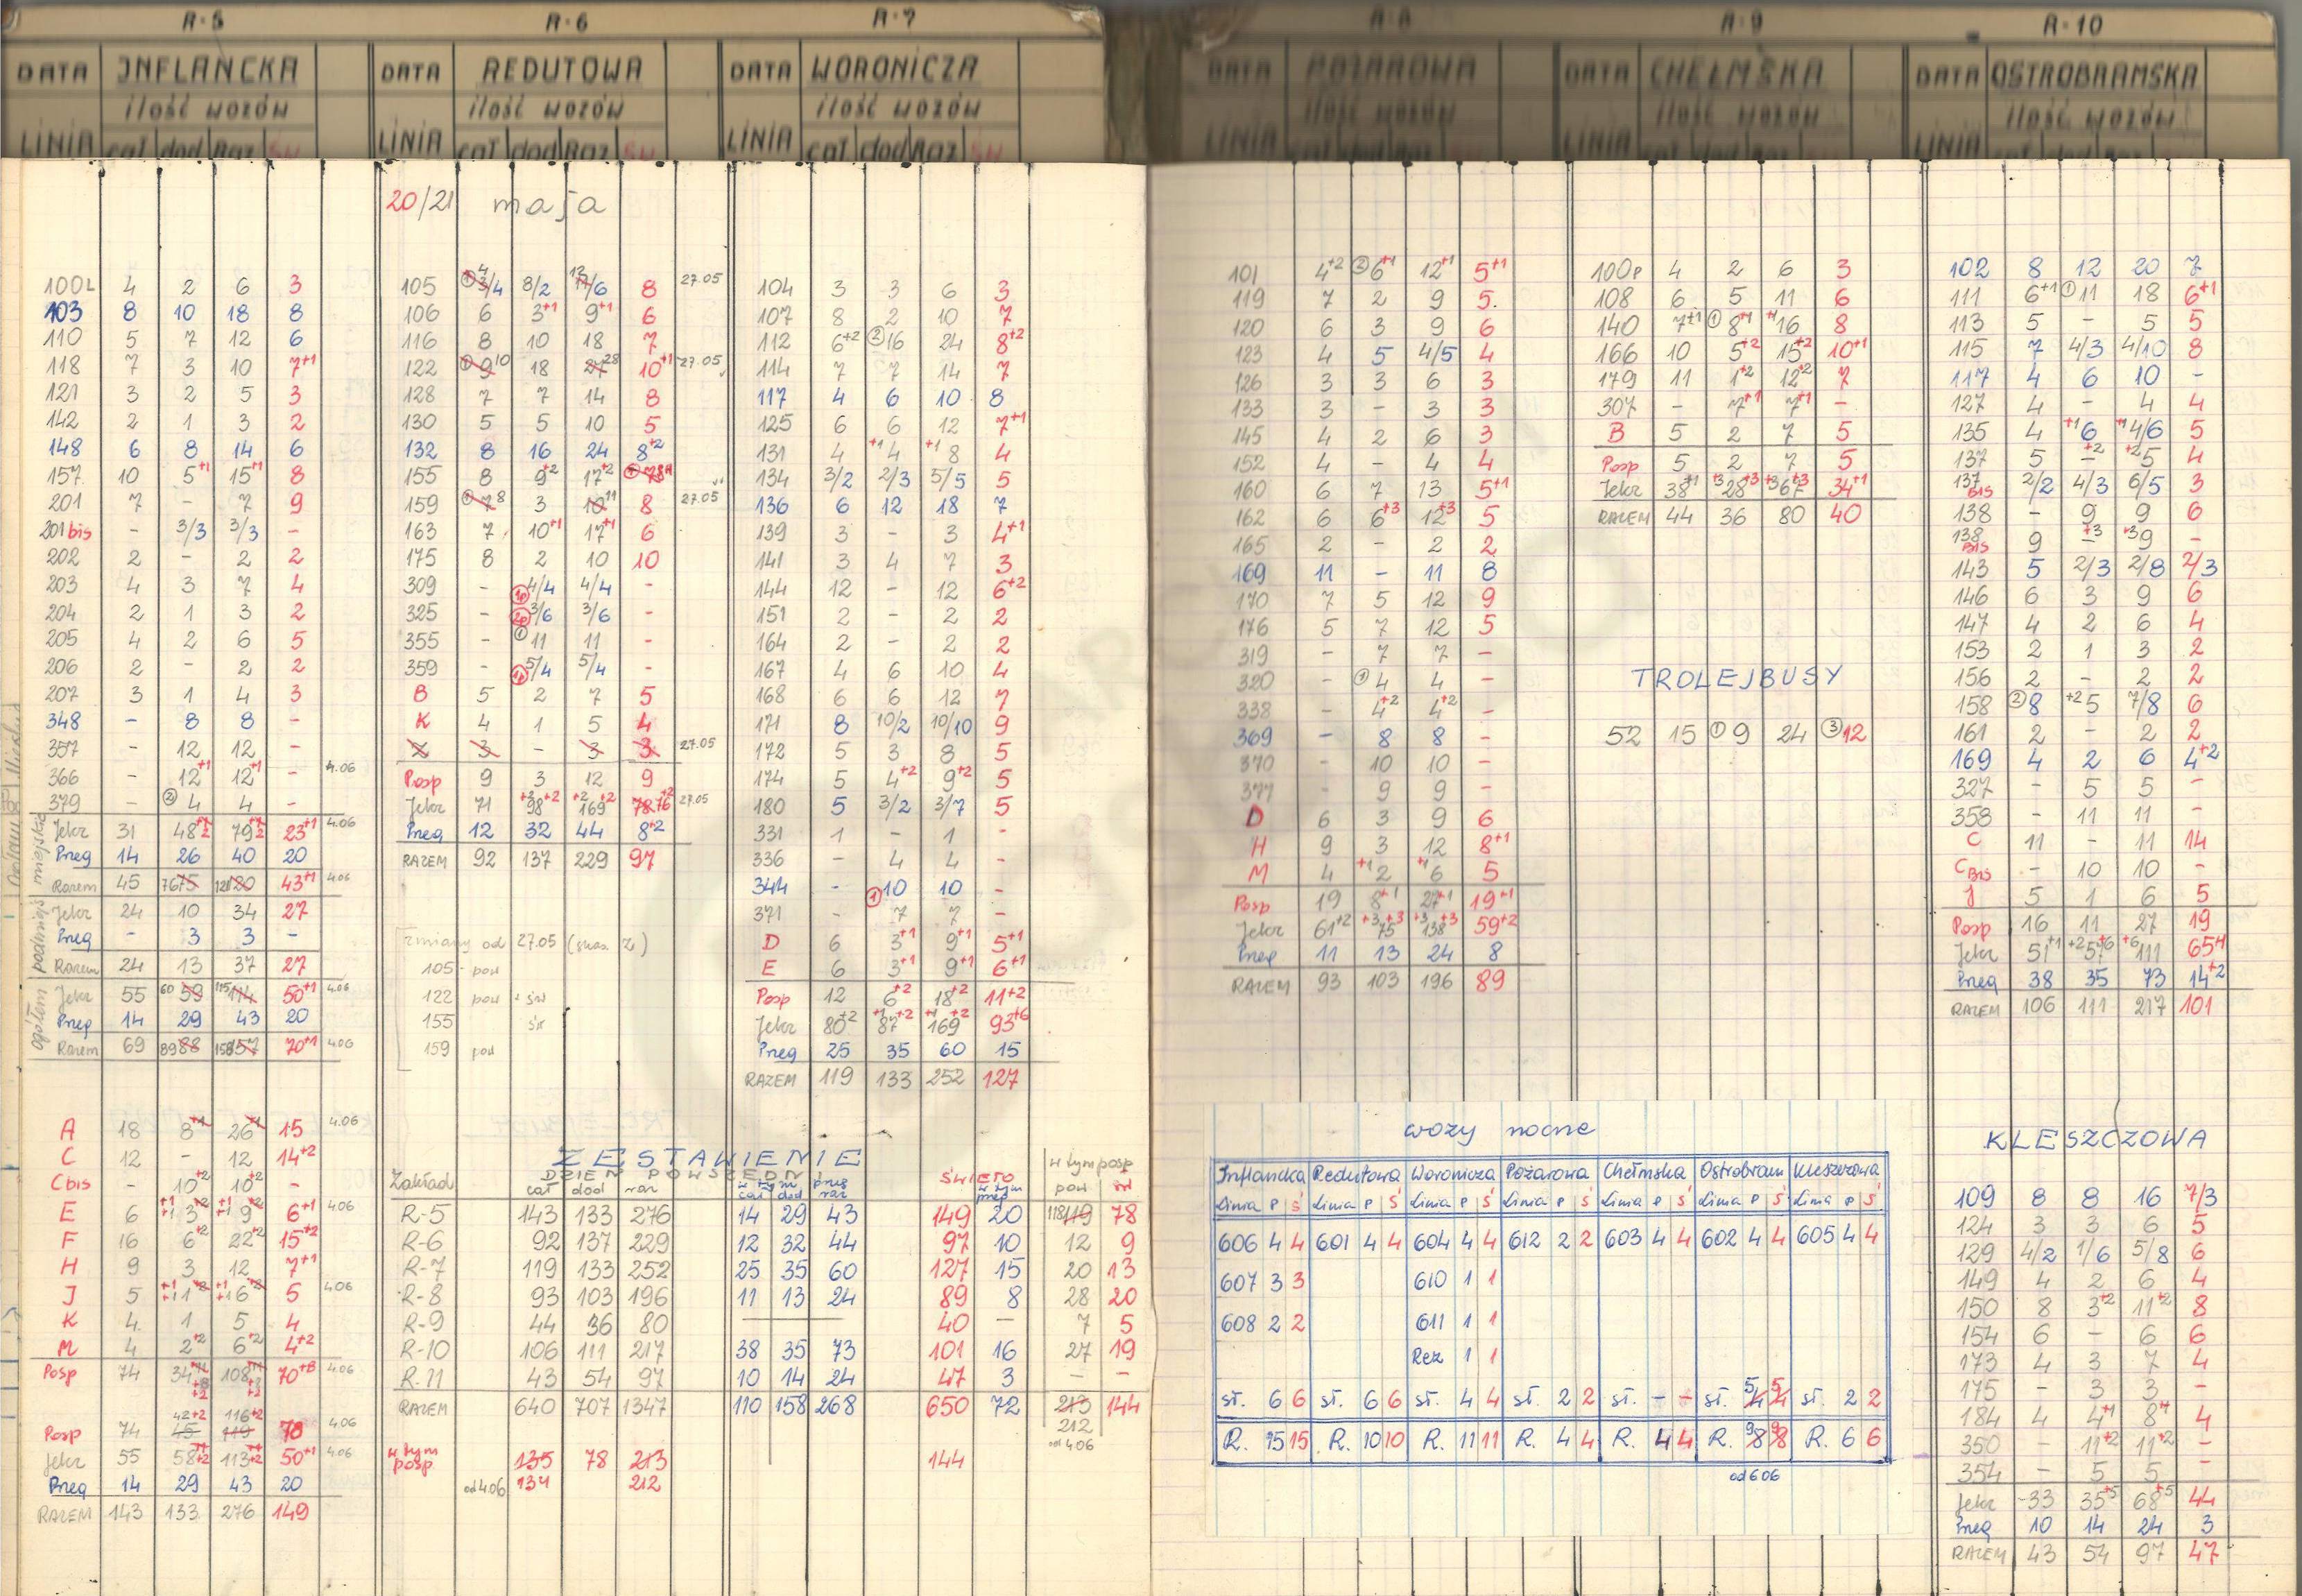 R-5
DATA INFLANCKA
ilość wozów
LINIA cał dod Raz św
100L 4 2 6 3
103 8 10 18 8
110 5 7 12 6
118 7 3 10 7+1
121 3 2 5 3
142 2 1 3 2
148 6 8 14 6
157 10 5+1 15+1 8
201 7 - 7 9
201 bis - 3/3 3/3 -
202 2 - 2 2
203 4 3 7 4
204 2 1 3 2
205 4 2 6 5
206 2 - 2 2
207 3 1 4 3
348 - 8 8 -
357 - 12 12 -
366 - 12+1 12+1 - 4.06
379 - ② 4 4 -
miejskie
Jelcz 31 48 79 23+1 4.06
Preg 14 26 40 20
Razem 45 76 75 121 120 43+1 4.06
podmiejs
Jelcz 24 10 34 27
Preg - 3 3 -
Razem 24 13 37 27
ogółem
Jelcz 55 60 59 115 114 50+1 4.06
Preg 14 29 43 20
Razem 69 89 88 158 157 70+1 4.06
A 18 8+1 26+1 15 4.06
C 12 - 12 14+2
C bis - 10+2 10+2 -
E 6 +1 3+2 +1 9+2 6+1 4.06
F 16 6+2 22+2 15+2
H 9 3 12 7+1
J 5 +1 1+2 +1 6+2 5 4.06
K 4 1 5 4
M 4 2+2 6+2 4+2
Posp 74 34 108 70+8 4.06
Posp 74 42+2 45 116+2 119 78 4.06
Jelcz 55 58+2 113+2 50+1 4.06
Preg 14 29 43 20
RAZEM 143 133 276 149
R-6
DATA REDUTOWA
ilość wozów
LINIA cał dod Raz św
20/21 maja
105 ① 4 3/4 8/2 12 11/6 8 27.05
106 6 3+1 9+1 6
116 8 10 18 7
122 ① 9 10 18 27 28 10+1 27.05
128 7 7 14 8
130 5 5 10 5
132 8 16 24 8+2
155 8 9+2 17+2
159 ① 7 8 3 10 11 8 27.05
163 7 10+1 17+1 6
175 8 2 10 10
309 - 1p 4/4 4/4 -
325 - 2p 3/6 3/6 -
355 - ① 11 11 -
359 - 1p 5/4 5/4 -
B 5 2 7 5
K 4 1 5 4
Z 3 - 3 3 27.05
Posp 9 3 12 9
Jelcz 71 +2 98+2 +2 169+2 78 76+2 27.05
Preg 12 32 44 8+2
RAZEM 92 137 229 97
zmiany od 27.05 (skas. Z)
105 - pow
122 pow i św
155 św
159 pow
R-7
DATA WORONICZA
ilość wozów
LINIA cał dod Raz św
104 3 3 6 3
107 8 2 10 7
112 6+2 ② 16 24 8+2
114 7 7 14 7
117 4 6 10 8
125 6 6 12 7+1
131 4 +1 4 +1 8 4
134 3/2 2/3 5/5 5
136 6 12 18 7
139 3 - 3 4+1
141 3 4 7 3
144 12 - 12 6+2
151 2 - 2 2
164 2 - 2 2
167 4 6 10 4
168 6 6 12 7
171 8 10/2 10/10 9
172 5 3 8 5
174 5 4+2 9+2 5
180 5 3/2 3/7 5
331 1 - 1 -
336 - 4 4 -
344 - ① 10 10 -
371 - 7 7 -
D 6 3+1 9+1 5+1
E 6 3+1 9+1 6+1
Posp 12 6+2 18+2 11+2
Jelcz 80+2 +1 87+2 +1 169+2 93+6
Preg 25 35 60 15
RAZEM 119 133 252 127
ZESTAWIENIE
Zakład DZIEŃ POWSZEDNI ŚWIĘTO w tym posp
cał dod raz w tym preg cał dod raz w tym preg pow św
R-5 143 133 276 14 29 43 149 20 118 119 78
R-6 92 137 229 12 32 44 97 10 12 9
R-7 119 133 252 25 35 60 127 15 20 13
R-8 93 103 196 11 13 24 89 8 28 20
R-9 44 36 80 40 - 7 5
R-10 106 111 217 38 35 73 101 16 27 19
R-11 43 54 97 10 14 24 47 3 - -
RAZEM 640 707 1347 110 158 268 650 72 213 144
212
od 4.06
w tym posp. 135 78 213 144
od 4.06 134 212
R-8
DATA POŻAROWA
ilość wozów
LINIA cał dod Raz św
101 4+2 ② 6+1 12+1 5+1
119 7 2 9 5
120 6 3 9 6
123 4 5 4/5 4
126 3 3 6 3
133 3 - 3 3
145 4 2 6 3
152 4 - 4 4
160 6 7 13 5+1
162 6 6+3 12+3 5
165 2 - 2 2
169 11 - 11 8
170 7 5 12 9
176 5 7 12 5
319 - 7 7 -
320 - ① 4 4 -
338 - 4+2 4+2 -
369 - 8 8 -
370 - 10 10 -
377 - 9 9 -
D 6 3 9 6
H 9 3 12 8+1
M 4 +1 2 +1 6 5
Posp 19 8+1 27+1 19+1
Jelcz 61+2 +3 75+3 +3 138+3 59+2
Preg 11 13 24 8
RAZEM 93 103 196 89
R-9
DATA CHEŁMSKA
ilość wozów
LINIA cał dod Raz św
100P 4 2 6 3
108 6 5 11 6
140 7+1 ① 8+1 +1 16 8
166 10 5+2 15+2 10+1
179 11 1+2 12+2 7
307 - 7+1 7+1 -
B 5 2 7 5
Posp 5 2 7 5
Jelcz 38+1 +3 28+3 +3 67+3 34+1
RAZEM 44 36 80 40
TROLEJBUSY
52 15 ① 9 24 ③ 12
R-10
DATA OSTROBRAMSKA
ilość wozów
LINIA cał dod Raz św
102 8 12 20 7
111 6+1 ① 11 18 6+1
113 5 - 5 5
115 7 4/3 4/10 8
117 4 6 10 -
127 4 - 4 4
135 4 +1 6 +1 4/6 5
137 5 +2 - +2 5 4
137 BIS 2/2 4/3 6/5 3
138 - 9 9 6
138 BIS 9 +3 - +3 9 -
143 5 2/3 2/8 2/3
146 6 3 9 6
147 4 2 6 4
153 2 1 3 2
156 2 - 2 2
158 ② 8 +2 5 7/8 6
161 2 - 2 2
169 4 2 6 4+2
327 - 5 5 -
358 - 11 11 -
C 11 - 11 14
C BIS - 10 10 -
J 5 1 6 5
Posp 16 11 27 19
Jelcz 51+1 +2 57+6 +6 111 65+1
Preg 38 35 73 14+2
RAZEM 106 111 217 101
KLESZCZOWA
109 8 8 16 7/3
124 3 3 6 5
129 4/2 1/6 5/8 6
149 4 2 6 4
150 8 3+2 11+2 8
154 6 - 6 6
173 4 3 7 4
175 - 3 3 -
184 4 4+1 8+1 4
350 - 11+2 11+2 -
354 - 5 5 -
Jelcz 33 35+5 68+5 44
Preg 10 14 24 3
RAZEM 43 54 97 47
wozy nocne
Inflancka Redutowa Woronicza Pożarowa Chełmska Ostrobram Kleszczowa
Linia P Ś Linia P Ś Linia P Ś Linia P Ś Linia P Ś Linia P Ś Linia P Ś
606 4 4 601 4 4 604 4 4 612 2 2 603 4 4 602 4 4 605 4 4
607 3 3 610 1 1
608 2 2 611 1 1
Rez 1 1
st. 6 6 st. 6 6 st. 4 4 st. 2 2 st. - - st. 5 4 5 4 st. 2 2
R. 15 15 R. 10 10 R. 11 11 R. 4 4 R. 4 4 R. 9 8 9 8 R. 6 6
od 6 06